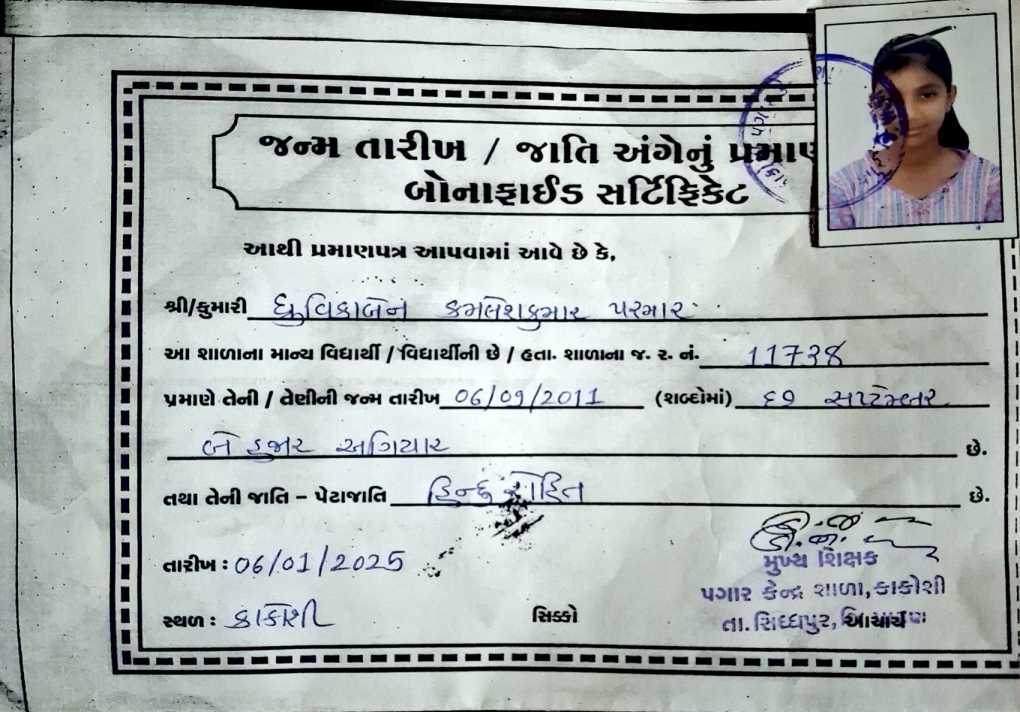 જન્મ તારીખ / જાતિ અંગેનું પ્રમાણ
બોનાફાઈડ સર્ટિફિકેટ
આથી પ્રમાણપત્ર આપવામાં આવે છે કે,
શ્રી/કુમારી ધ્રુવિકાબેન કમલેશકુમાર પરમાર
આ શાળાના માન્ય વિદ્યાર્થી / વિદ્યાર્થીની છે / હતા. શાળાના જ. ર. નં. 11738
પ્રમાણે તેની / તેણીની જન્મ તારીખ 06/09/2011 (શબ્દોમાં) છઠ્ઠી સપ્ટેમ્બર
બે હજાર અગિયાર છે.
તથા તેની જાતિ – પેટાજાતિ હિન્દુ રોહિત છે.
તારીખ : 06/01/2025
મુખ્ય શિક્ષક
પગાર કેન્દ્ર શાળા, કાકોશી
સ્થળ : કાકોશી સિક્કો તા. સિધ્ધપુર, આચાર્ય